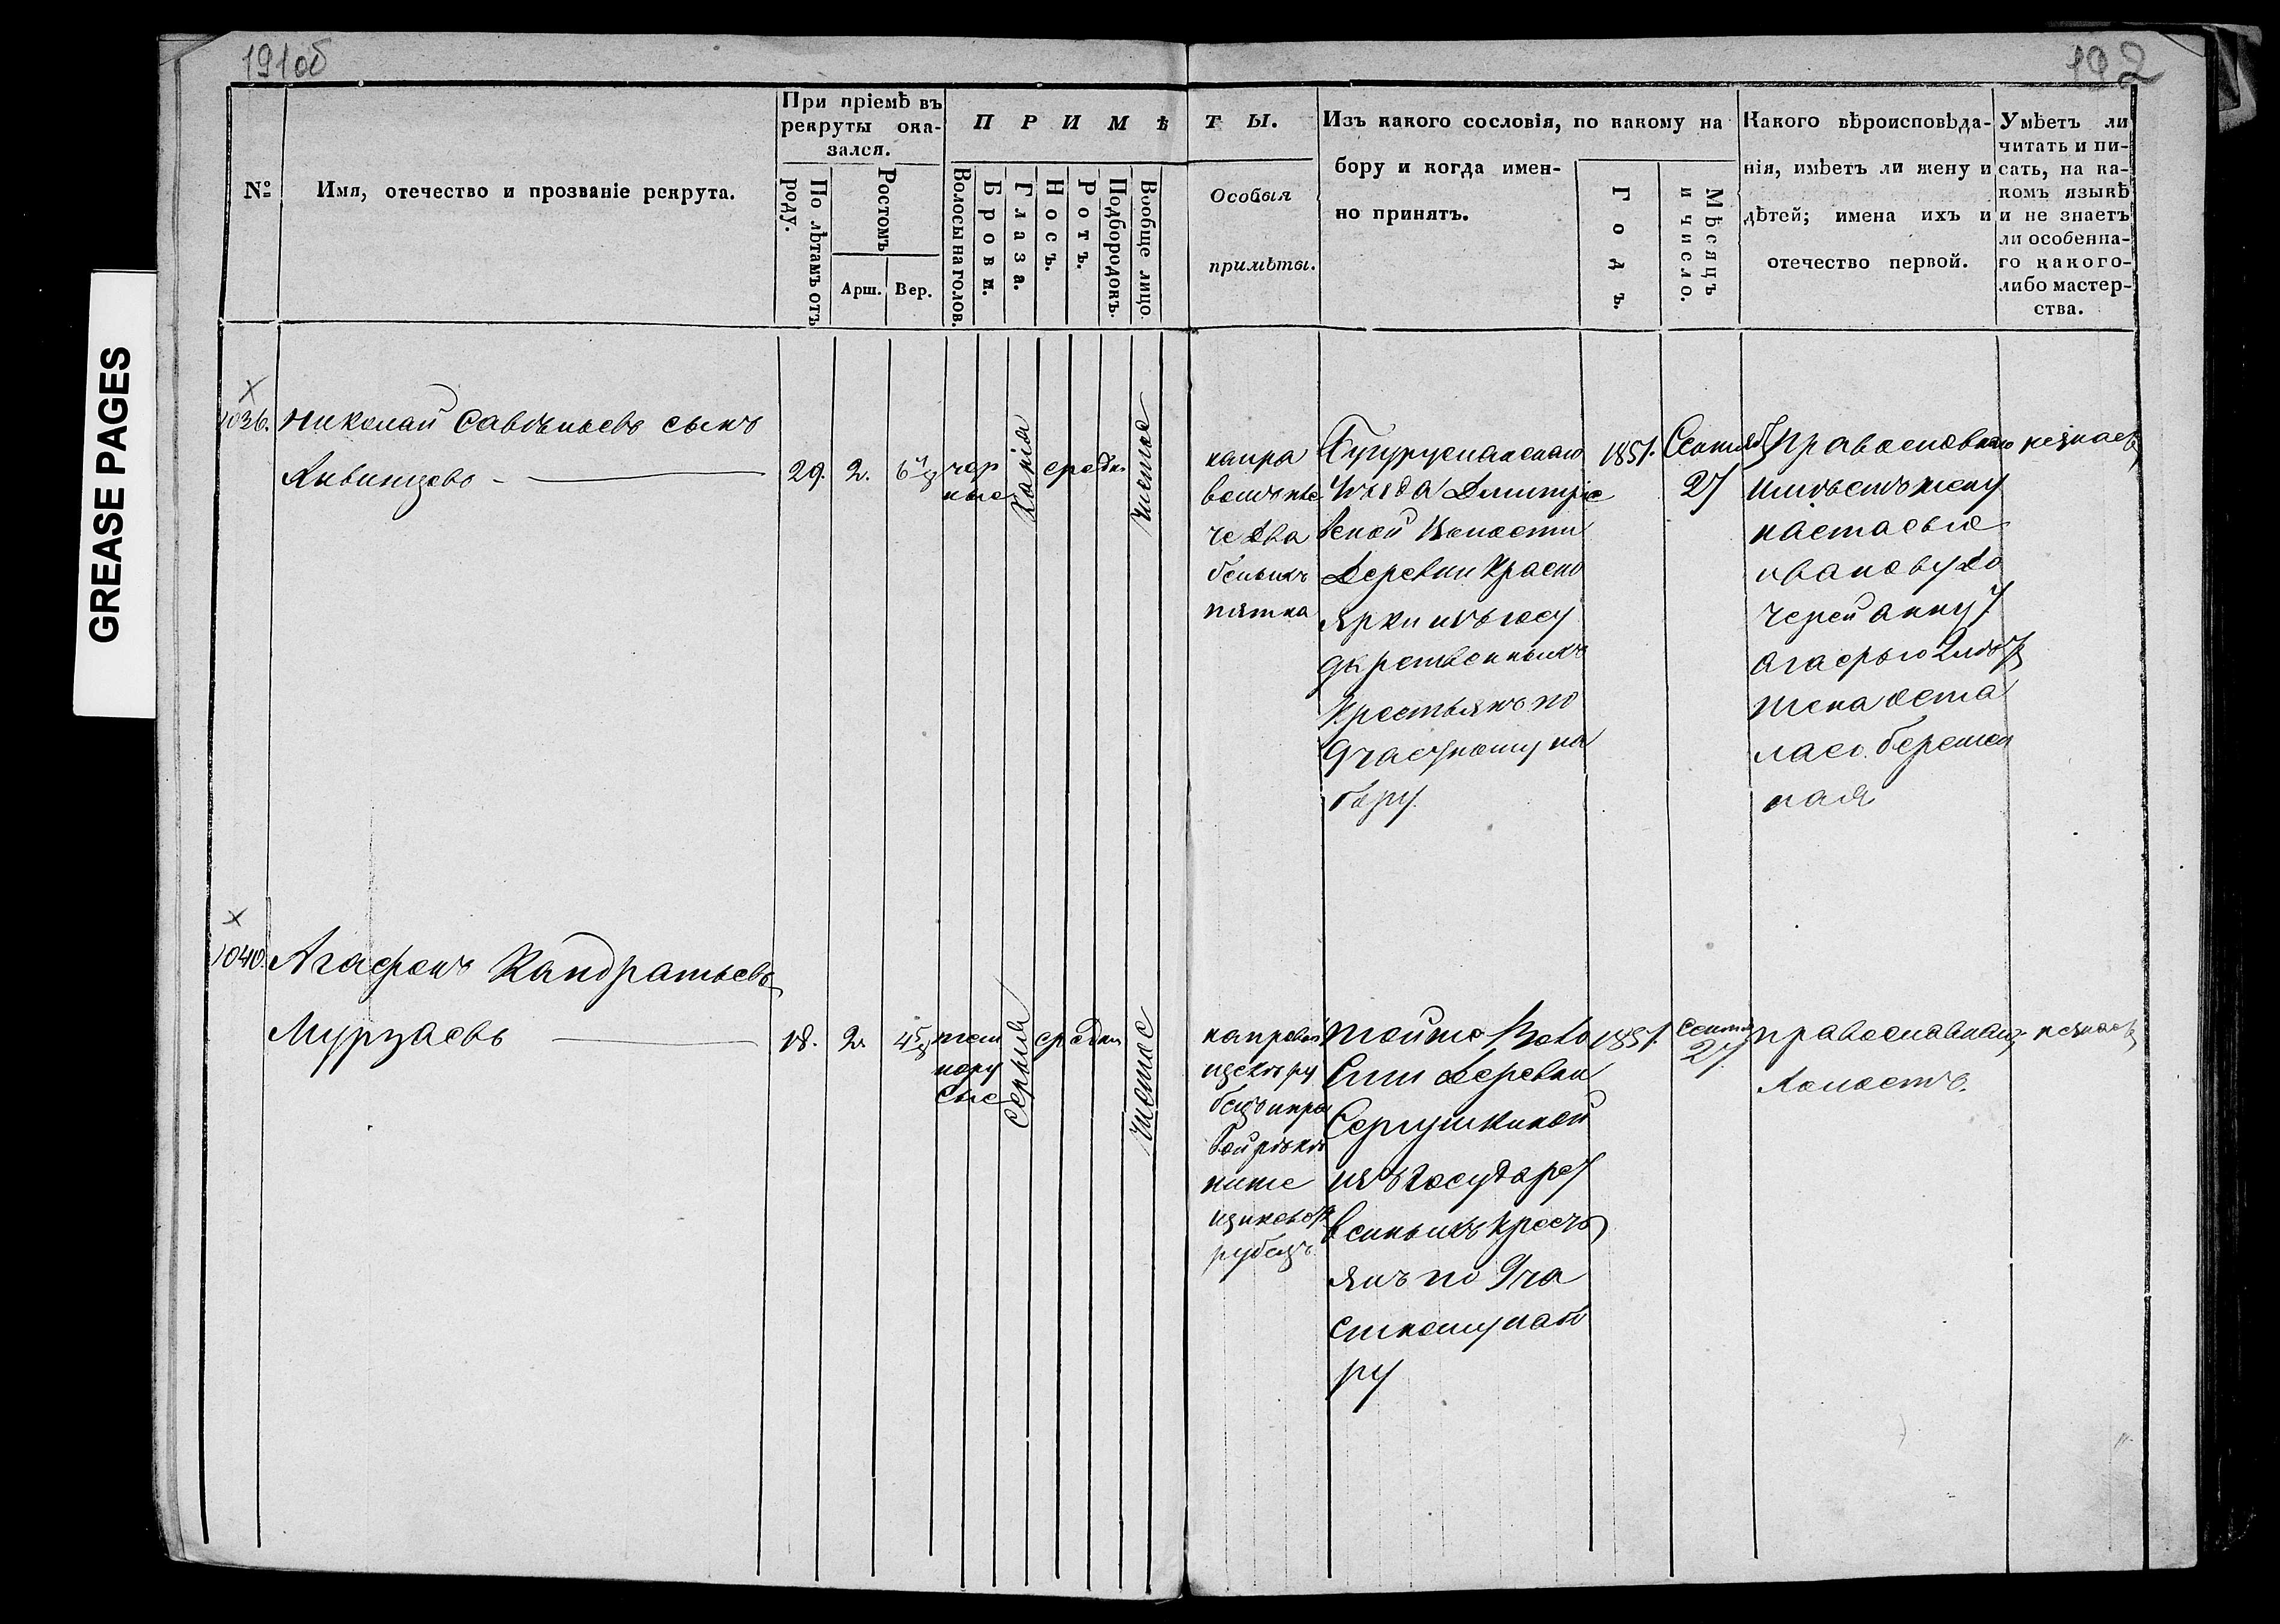 191об
192
GREASE PAGES
№
Имя, отечество и прозваніе рекрута.
При пріемѣ въ
рекруты ока-
зался.
По лѣтамъ отъ
роду.
Ростомъ
Арш.
Вер.
ПРИМѢ
Волосы на голов.
Брови.
Глаза.
Носъ.
Ротъ.
Подбородокъ.
Вообще лицо.
ТЫ.
Особыя
примѣты.
Изъ какого сословія, по какому на
бору и когда имен-
но принятъ.
Годъ.
Мѣсяцъ
и число.
Какого вѣроисповѣда-
нія, имѣетъ ли жену и
дѣтей; имена ихъ и
отечество первой.
Умѣетъ ли
читать и пи-
сать, на ка-
комъ языкѣ
и не знаетъ
ли особенна-
го какого-
либо мастер-
ства.
1036.
Николай Савельевъ сынъ
29.
2.
6 1/8
чор
ные
Карія
средн
чистое
напра
чедва
белыхъ
пятна
Бугурусланскаго
уезда Дмитріе
вской Волости
Деревни Красно
ярки изъ госу
дарственныхъ
Крестьянъ по
участному на
бору.
1851.
Сентяб
27
Православнаго
имѣетъ жену
настасью
иванову до
черей анну 7
агафью 2 летъ
жена оста
лась беремен
ная
незнаетъ
1040.
Агафонъ Кандратьевъ
Мурзаевъ
18.
2.
4 5/8
тем
нору
сые
серыя
средни
чистое
направой
щеке ру
бецъ
ниже
рубецъ
тойже Воло
сти Деревни
Сергушкиной
изъ государст
венныхъ кресть
янъ по Уча
стному набо
ру
1851.
Сентяб
27.
православнаго
холостъ.
незнаетъ